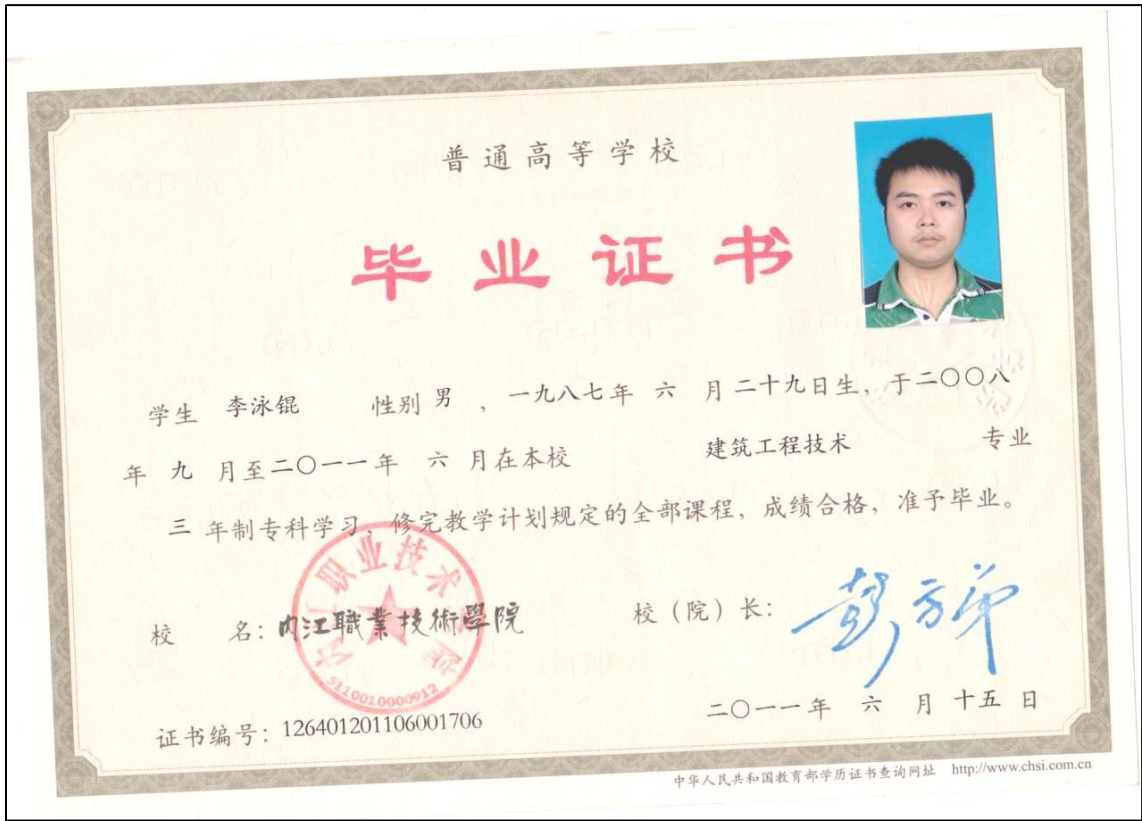 普通高等学校
毕业证书
学生 李泳锟 性别 男 ，一九八七年 六 月二十九日生，于二〇〇八
年 九 月至二〇一一年 六 月在本校 建筑工程技术 专业
三 年制专科学习，修完教学计划规定的全部课程，成绩合格，准予毕业。
校 名：内江職業技術學院
内江职业技术学院
5110010000912
校（院）长：
二〇一一年 六 月 十五 日
证书编号：126401201106001706
中华人民共和国教育部学历证书查询网址 http://www.chsi.com.cn